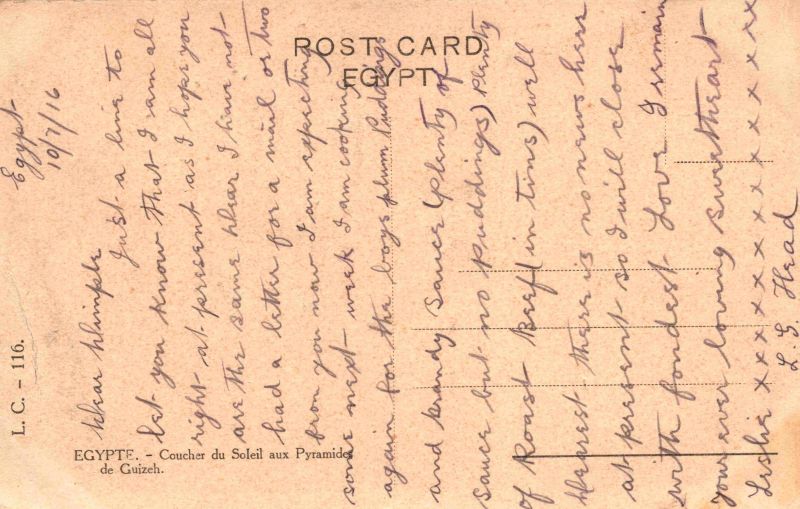 POST CARD
EGYPT
Egypt
10/7/16
Dear Dimple
Just a line to
let you know that I am all
right at present as I hope you
are the same Dear I have not
had a letter for a mail or two
from you now I am expecting
some next week I am cooking
again for the boys plum Puddings
and Brandy Sauce (Plenty of
sauce but no puddings) Plenty
of Roast Beef (in tins) well
Dearest there is no news here
at present so I will close
with fondest Love I remain
your ever loving Sweetheart
Leslie x x x x x x x x x x x x x
L. G. Head
L. C. - 116.
EGYPTE. - Coucher du Soleil aux Pyramides
de Guizeh.